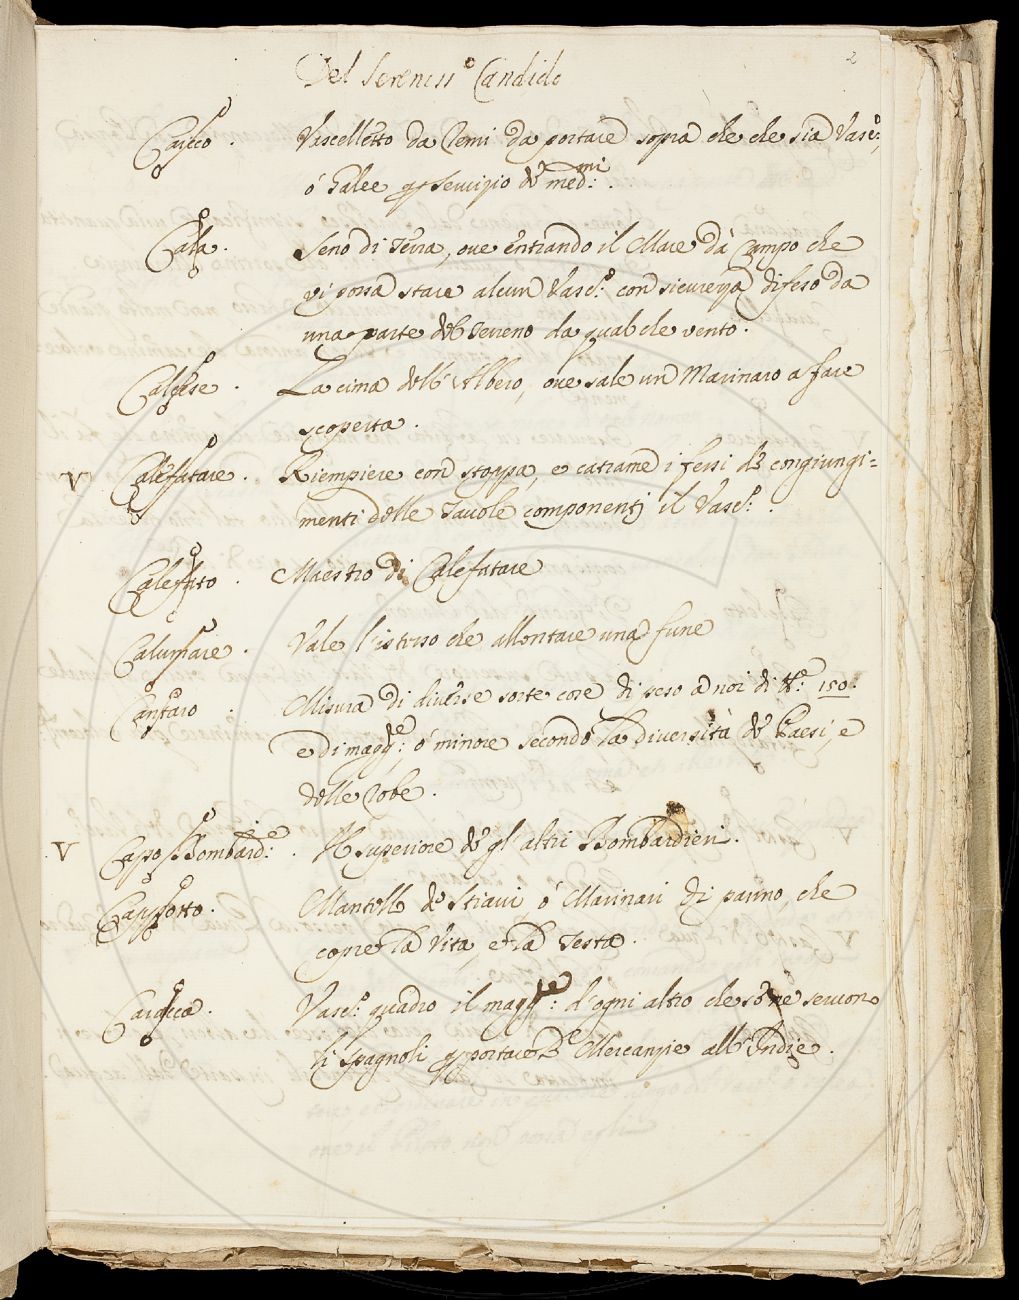 2
Del Sereniss.o Candido
Caicco . Vascelletto da Remi da portare sopra che che sia Vasc.o,
ò Galee p servizio de med.mi.
Cala . Seno di Terra, ove entrando il Mare dà Campo che
vi possa stare alcun Vasc.o con sicurezza difeso da
una parte del Terreno da qualche vento.
Calcese . La cima dell' Albero, ove sale un Marinaro a fare
scoperta.
V Calefatare . Riempiere con stoppa, e catrame i fessi de congiungi=
menti delle Tavole componenti il Vasc.o.
Calefato . Maestro di Calefatare
Calumare . Vale l'istesso che allentare una fune
Cantaro . Misura di diverse sorte cose di peso a noi di 150.
e di magg.re; ò minore secondo la diversità de Paesi, e
delle robe.
V Cappo Bombard.e . Il superiore de gl' altri Bombardieri.
Cappotto . Mantello de Stiavi, ò Marinari di panno, che
copre la Vita, e la Testa.
Caracca . Vasc.o quadro il magg.re: d'ogni altro che se ne servono
li Spagnoli p portare Mercanzie all' Indie.